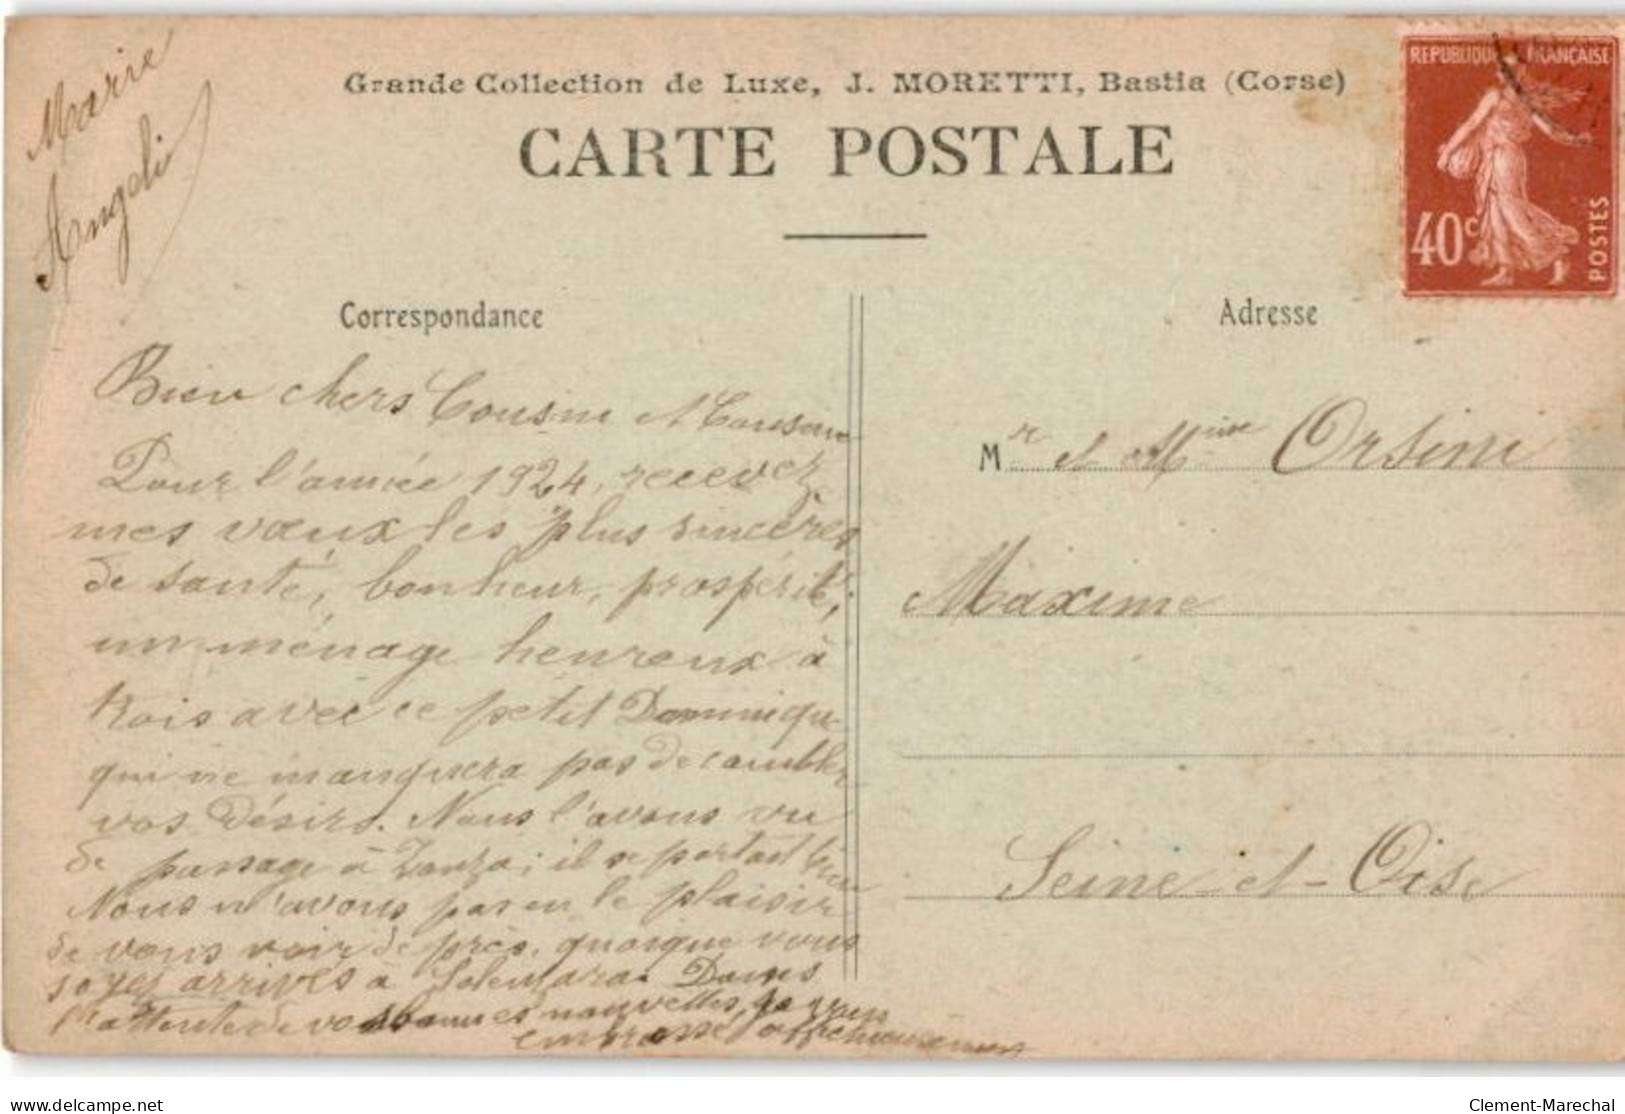 Marie
Angeli
Grande Collection de Luxe, J. MORETTI, Bastia (Corse)
CARTE POSTALE
REPUBLIQUE FRANÇAISE
40c
POSTES
Correspondance
Bien chers Cousine et Cousin
Pour l'année 1924, recevez
mes vœux les plus sincères
de santé, bonheur, prospérité,
un ménage heureux à
trois avec ce petit Dominique
qui ne manquera pas de combler
vos désirs. Nous l'avons vu
de passage à Zonza; il se portait bien
Nous n'avons pas eu le plaisir
de vous voir de près, quoique vous
soyez arrivés à Solenzara. Dans
l'attente de vos bonnes nouvelles, je vous
embrasse affectueusement
Adresse
Mr et Mme Orsini
Maxime
Seine-et-Oise
delcampe.net
Clement-Marechal